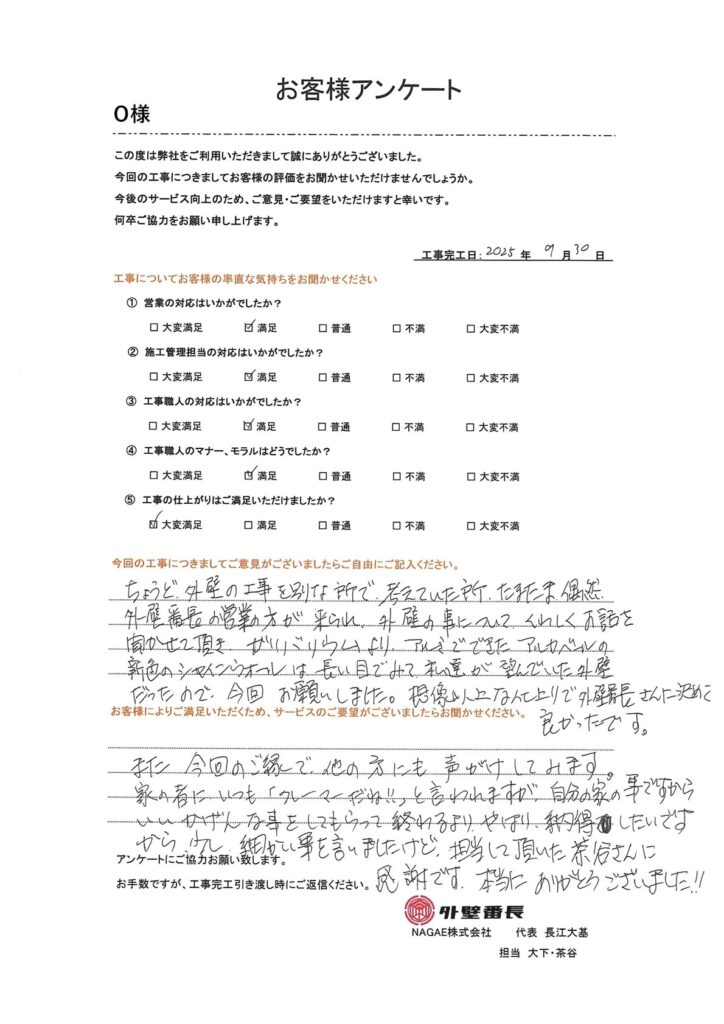 お客様アンケート
O様
この度は弊社をご利用いただきまして誠にありがとうございました。
今回の工事につきましてお客様の評価をお聞かせいただけませんでしょうか。
今後のサービス向上のため、ご意見・ご要望をいただけますと幸いです。
何卒ご協力をお願い申し上げます。
工事完工日: 2025 年 9 月 30 日
工事についてお客様の率直な気持ちをお聞かせください
① 営業の対応はいかがでしたか?
□ 大変満足 ☑ 満足 □ 普通 □ 不満 □ 大変不満
② 施工管理担当の対応はいかがでしたか?
□ 大変満足 ☑ 満足 □ 普通 □ 不満 □ 大変不満
③ 工事職人の対応はいかがでしたか?
□ 大変満足 ☑ 満足 □ 普通 □ 不満 □ 大変不満
④ 工事職人のマナー、モラルはどうでしたか?
□ 大変満足 ☑ 満足 □ 普通 □ 不満 □ 大変不満
⑤ 工事の仕上がりはご満足いただけましたか?
☑ 大変満足 □ 満足 □ 普通 □ 不満 □ 大変不満
今回の工事につきましてご意見がございましたらご自由にご記入ください。
ちょうど、外壁の工事を別な所で、考えていた所、たまたま偶然、
外壁番長の営業の方が来られ、外壁の事について、くわしくお話を
聞かせて頂き、ガルバリウムより、アルミでできたアルカベールの
新色のシャインウォールは長い目でみて私達が望んでいた外壁
だったので、今回お願いしました。想像以上な仕上りで外壁番長さんに決めて
良かったです。
お客様によりご満足いただくため、サービスのご要望がございましたらお聞かせください。
また今回のご縁で、他の方にも声がけしてみます。
家の者にいつも「クレーマーだね!!」と言われますが、自分の家の事ですから
いいかげんな事をしてもらって終わるより、やはり、納得したいです
から、少し、細かい事を言いましたけど、担当して頂いた茶谷さんに
感謝です。本当にありがとうございました!!
アンケートにご協力お願い致します。
お手数ですが、工事完工引き渡し時にご返信ください。
外壁番長
NAGAE株式会社 代表 長江大基
担当 大下・茶谷